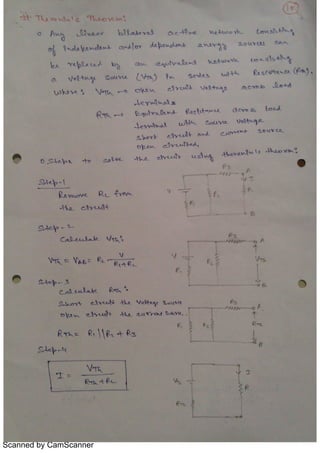 # Thevenin's Theorem!
o Any linear bilateral active network consisting
of Independent and/or dependent energy sources can
be replaced by an equivalent network consisting
a Voltage Source (VTh) in series with Resistance (RTh).
Where: VTh → open circuit Voltage across load
terminals
RTh → Equivalent Resistance across load
terminal with source voltage
short circuit and current source
open circuited.
o Steps to solve the circuit using thevenin's theorem:
Step-1
Remove RL from
the circuit
R3
A
V
R1
R2
B
Step-2
Calculate VTh:
VTh = VAB = R2 V / R1+R2
R3
A
V
R1
R2
VTh
B
Step-3
Calculate RTh:
Short circuit the Voltage Source
open circuit the current source.
RTh = R1 || R2 + R3
R3
A
R1
R2
RTh
B
Step-4
I = VTh / RTh + RL
VTh
RTh
I
R
Scanned by CamScanner